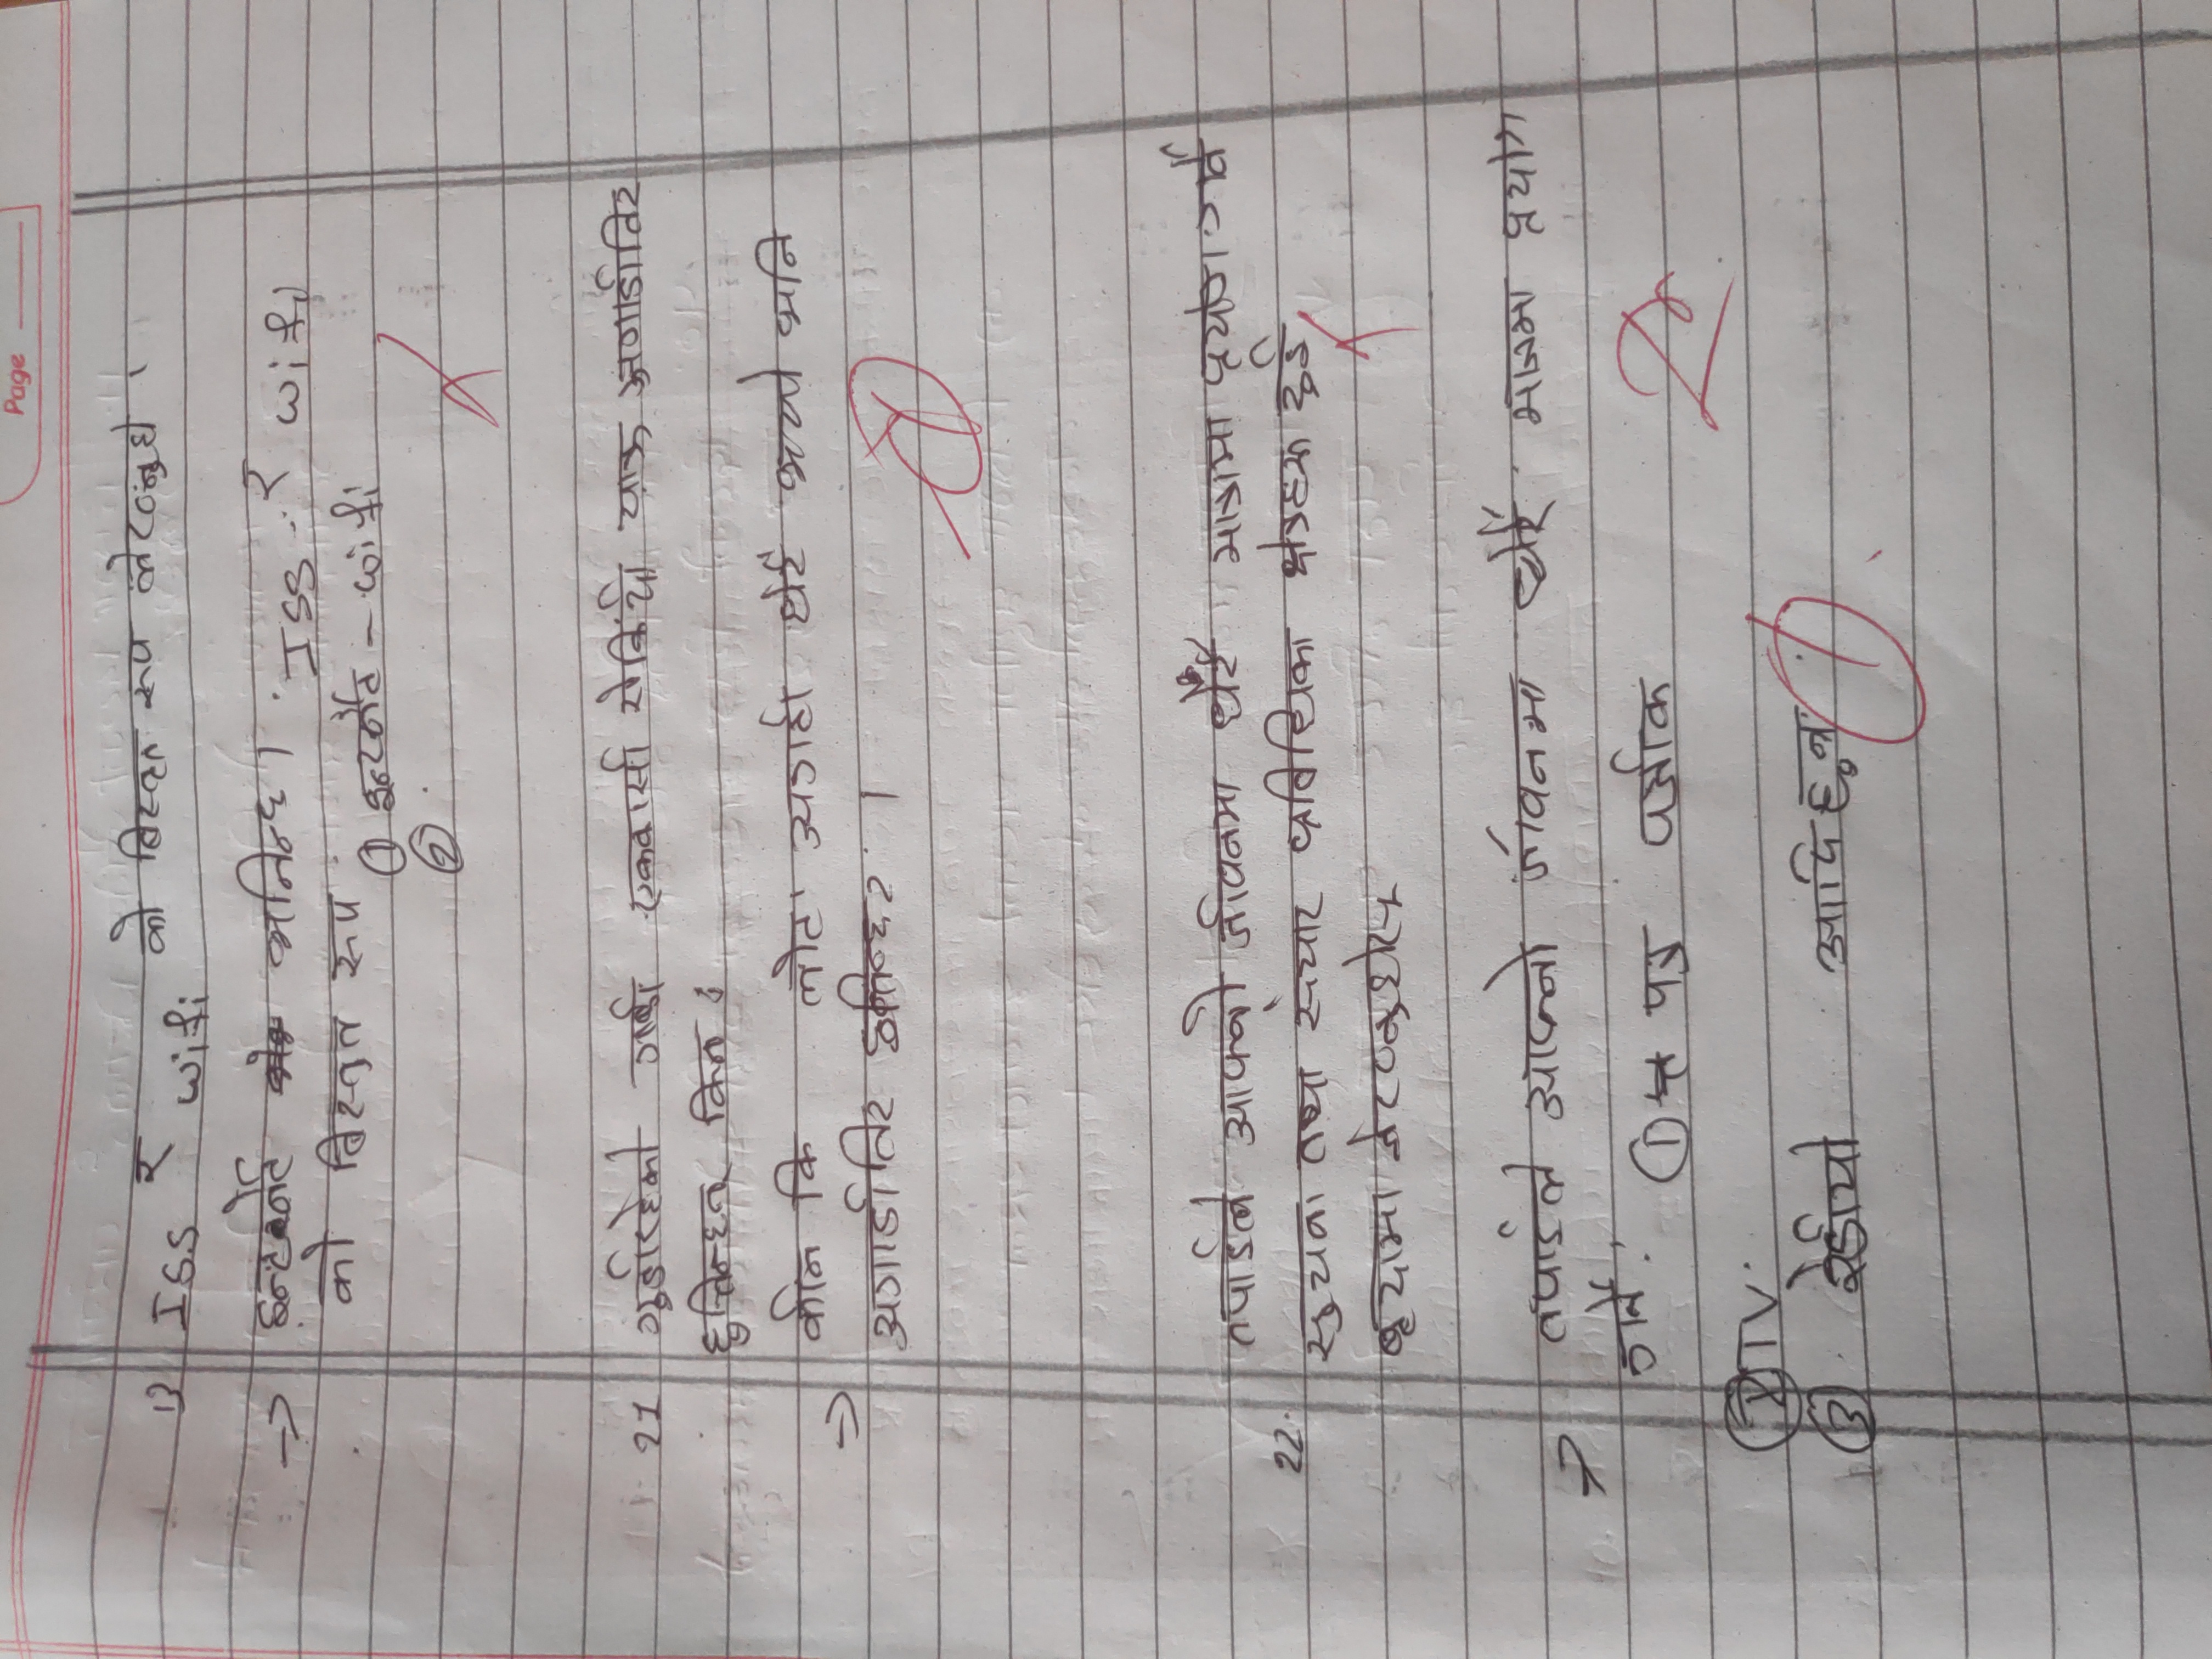 Page
13 ISS र wifi को बिस्तृत रूप लेख्नुहो ।
→ इन्टरनेट भनिन्छ । ISS र wifi
को बिस्तृत रूप
① इन्टर्नेट - wifi
②
21 गुडीरहेको गाडी एक्कासी रोकिँदा यात्रु अगाडीतिर
हुत्तिन्छन् किन ?
→ कीन कि अगाडी धेरै भयो भनि
अगाडीतिर
22. तपाईले आफ्नो जीवनमा धेरै मात्रामा प्रयोग गर्ने
सुचना तथा संचार प्रविधिका क्षेत्रहरु दुई
बुदामा लेख्नुहोस्
→ तपाईले आफ्नो जीवनमा धेरै मात्रमा प्रयोग
गर्ने :
① पत्र पत्रीक
② TV.
③ रेडीयो आदि हुन्